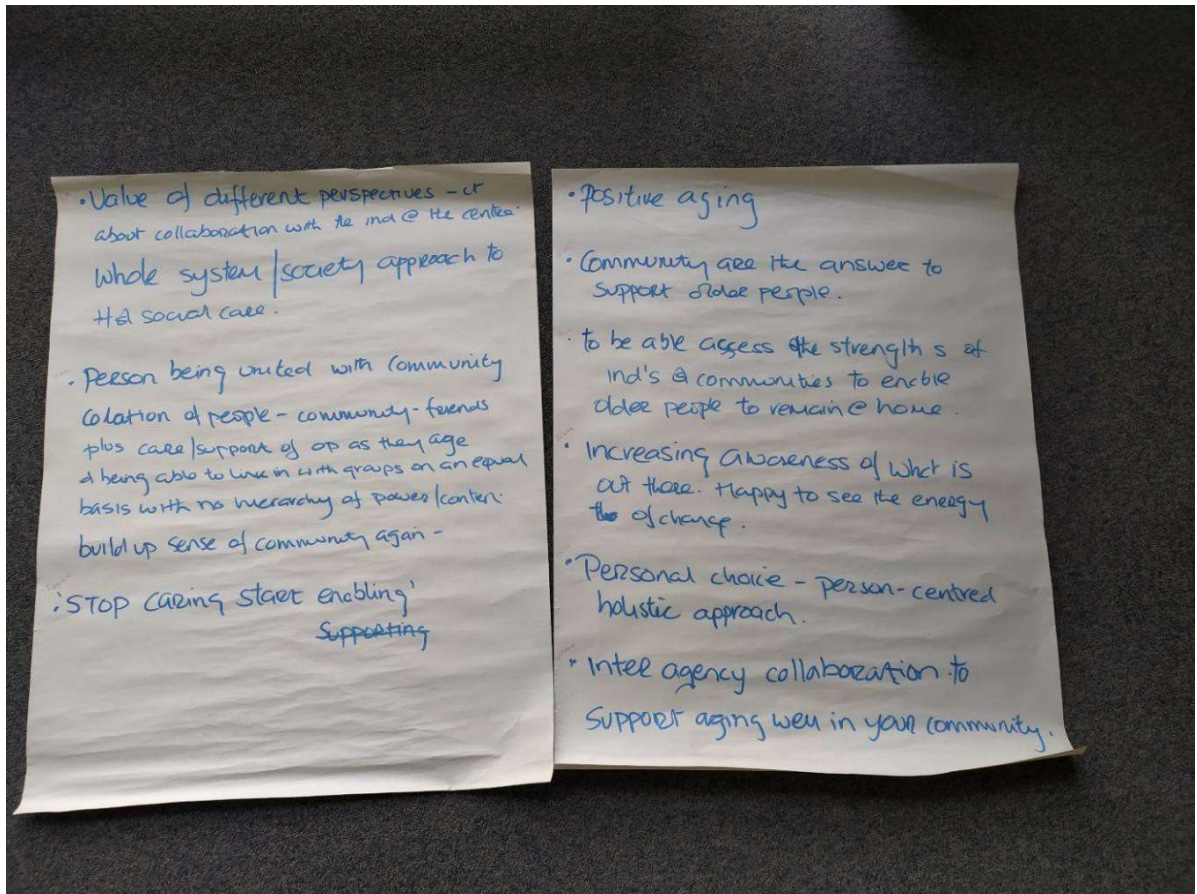 • Value of different perspectives - it
about collaboration with the ind @ the center.
whole system / society approach to
H & social care.
• Person being united with community
Colation of people - community - friends
plus care / support of op as they age
& being able to link in with groups on an equal
basis with no hierarchy of power /
build up sense of community again -
• 'STOP caring start enabling'
Supporting
• Positive aging
• Community are the answer to
support older people.
• to be able access the strengths of
ind's & communities to enable
older people to remain @ home.
• Increasing awareness of what is
out there. Happy to see the energy
of change.
• Personal choice - person-centred
holistic approach.
• Inter agency collaboration to
support aging well in your community.